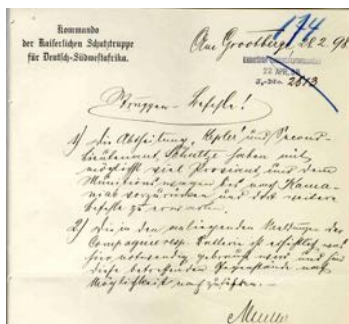 Kommando
der Kaiserlichen Schutztruppe
für Deutsch-Südwestafrika.
174
Am Grootberg, 28.2.98
22 APR. 98
2613
Truppen-Befehle!
1) Die Abtheilung Kepler und Second-
Lieutenant Schultze haben mit
möglichst viel Proviant und dem
Munitionswagen bis nach Kama-
niab vorzurücken und dort weitere
Befehle zu erwarten.
2) Die in den anliegenden Meldungen der
Compagnie resp. Batterie ist ersichtlich was
hier notwendig gebraucht wird und sind
diese betreffenden Gegenstände nach
Möglichkeit nachzuführen.